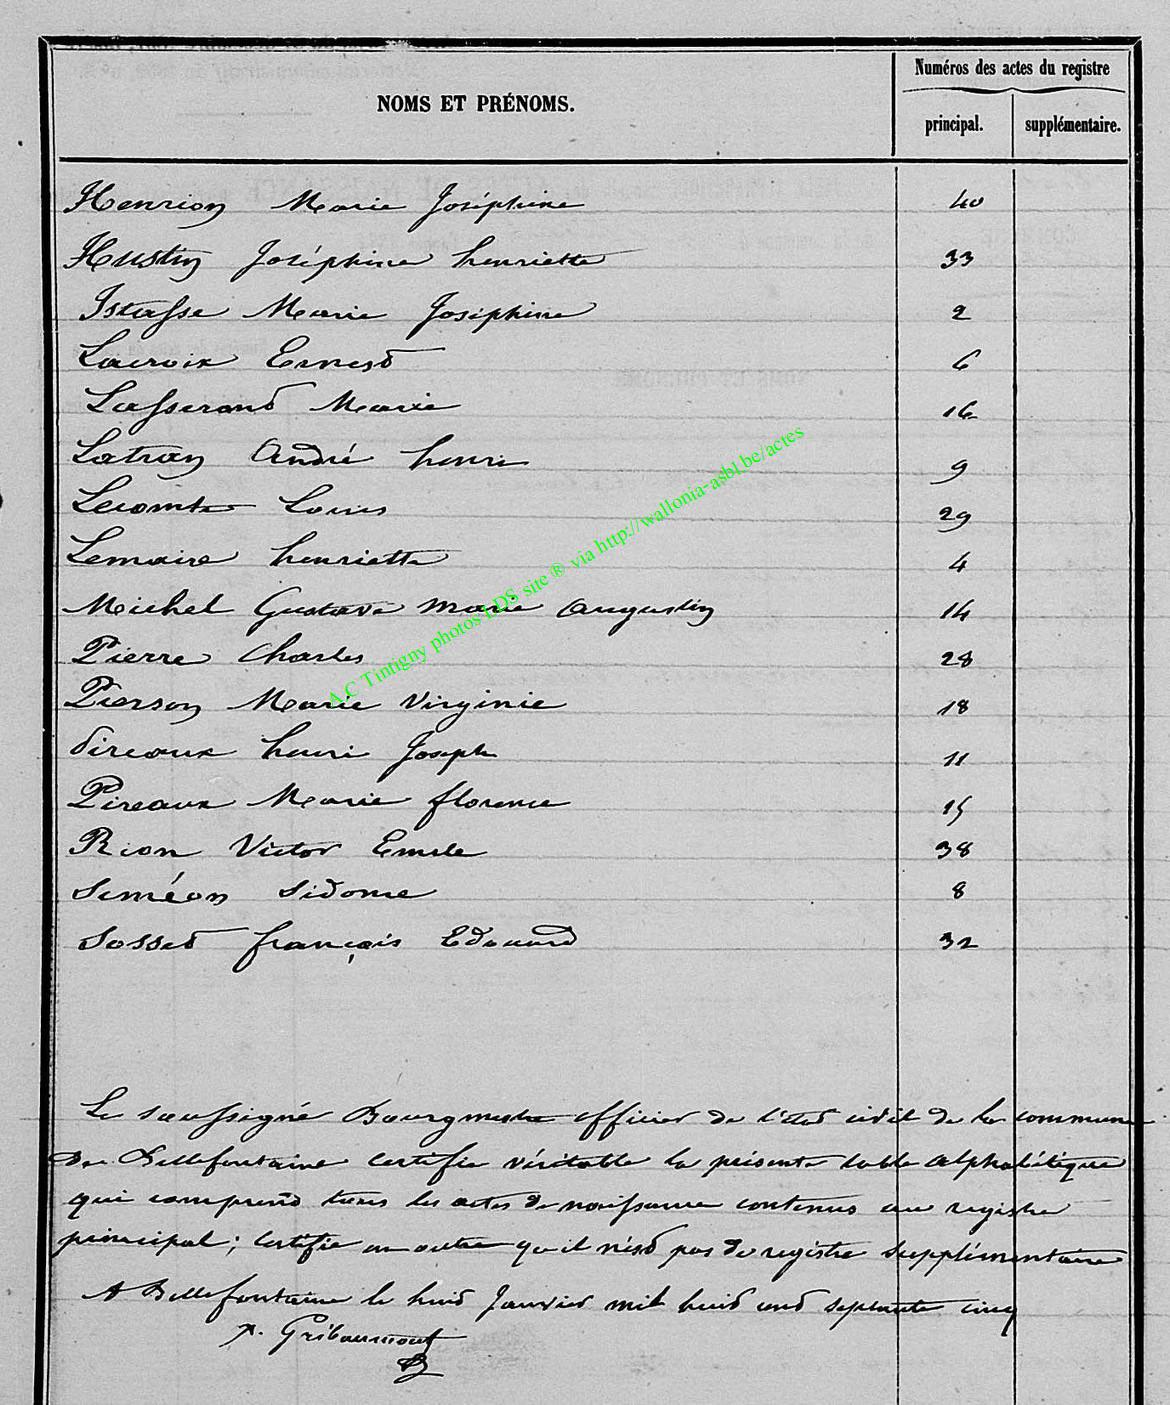 Numéros des actes du registre
NOMS ET PRÉNOMS.
principal. supplémentaire.
Henrion Marie Joséphine 40
Hustin Joséphine henriette 33
Istasse Marie Joséphine 2
Lacroix Ernest 6
Lasserand Marie 16
Latran André henri 9
Lecomte Louis 29
Lemaire henriette 4
Michel Gustave Marie Augustin 14
Pierre Charles 28
Pierson Marie Virginie 18
Pireaux henri Joseph 11
Pireaux Marie florence 15
Rion Victor Emile 38
Siméon Sidonie 8
Sosset françois Edouard 32
A.C Tintigny photos LDS site ® via http://wallonia-asbl.be/actes
Le soussigné Bourgmestre officier de l'état civil de la commune
De Bellefontaine certifie véritable la présente table alphabétique
qui comprend tous les actes de naissance contenus au registre
principal; certifie en outre qu'il n'est pas de registre supplémentaire
A Bellefontaine le huit Janvier mil huit cent septante cinq
Gribaumont